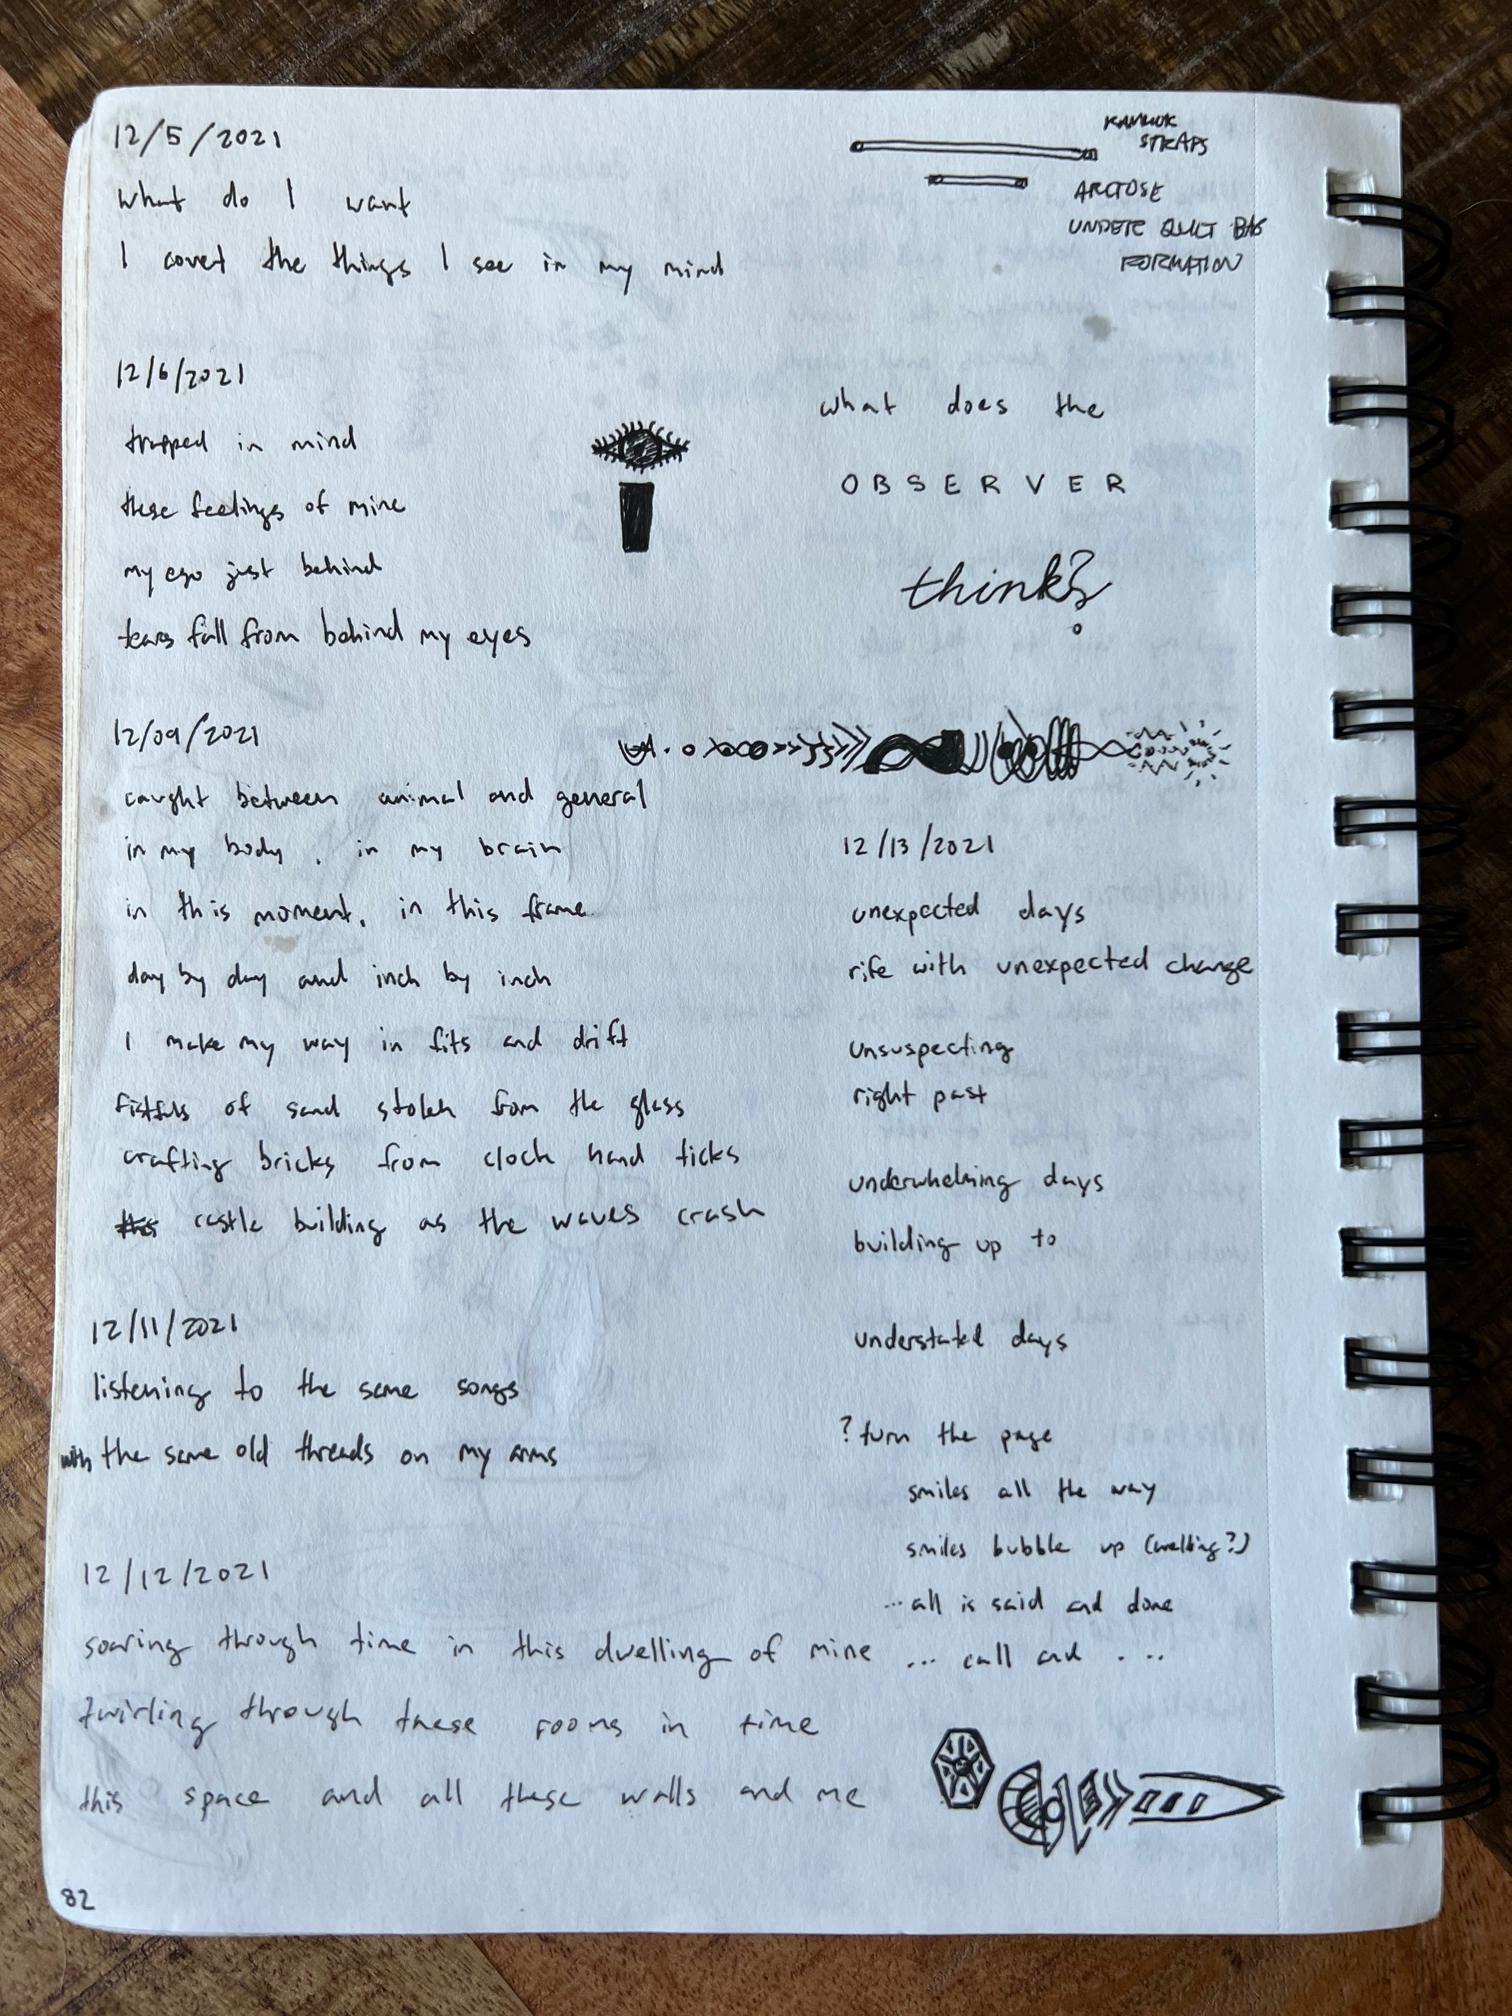 12/5/2021
what do I want
I covet the things I see in my mind
12/6/2021
trapped in mind
these feelings of mine
my ego just behind
tears fall from behind my eyes
12/09/2021
caught between animal and general
in my body, in my brain
in this moment, in this frame
day by day and inch by inch
I make my way in fits and drift
fistfuls of sand stolen from the glass
crafting bricks from clock hand ticks
castle building as the waves crash
12/11/2021
listening to the same songs
with the same old threads on my arms
12/12/2021
soaring through time in this dwelling of mine
twirling through these rooms in time
this space and all these walls and me
82
STRAPS
UNDER QUILT BAG
FORMATION
what does the
OBSERVER
think?
12/13/2021
unexpected days
rife with unexpected change
unsuspecting
right past
underwhelming days
building up to
understated days
? turn the page
smiles all the way
smiles bubble up (welling?)
... all is said and done
... call and ...